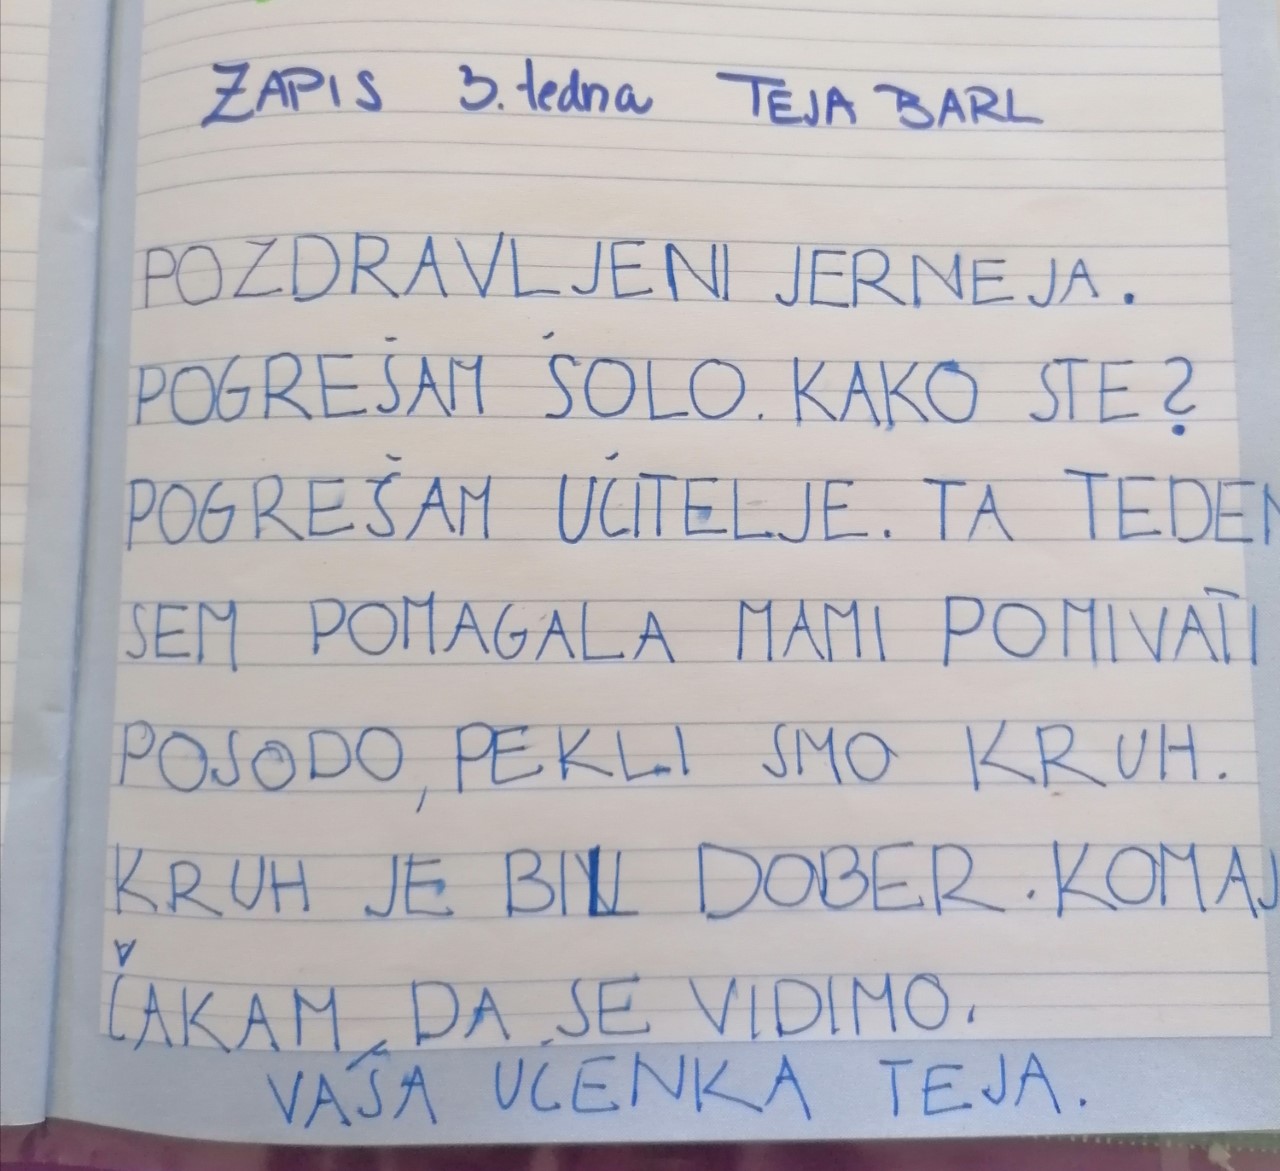 ZAPIS 3. tedna TEJA BARL
POZDRAVLJENI JERNEJA.
POGREŠAM ŠOLO. KAKO STE?
POGREŠAM UČITELJE. TA TEDEN
SEM POMAGALA MAMI POMIVATI
POSODO, PEKLI SMO KRUH.
KRUH JE BIL DOBER. KOMAJ
ČAKAM, DA SE VIDIMO.
VAŠA UČENKA TEJA.